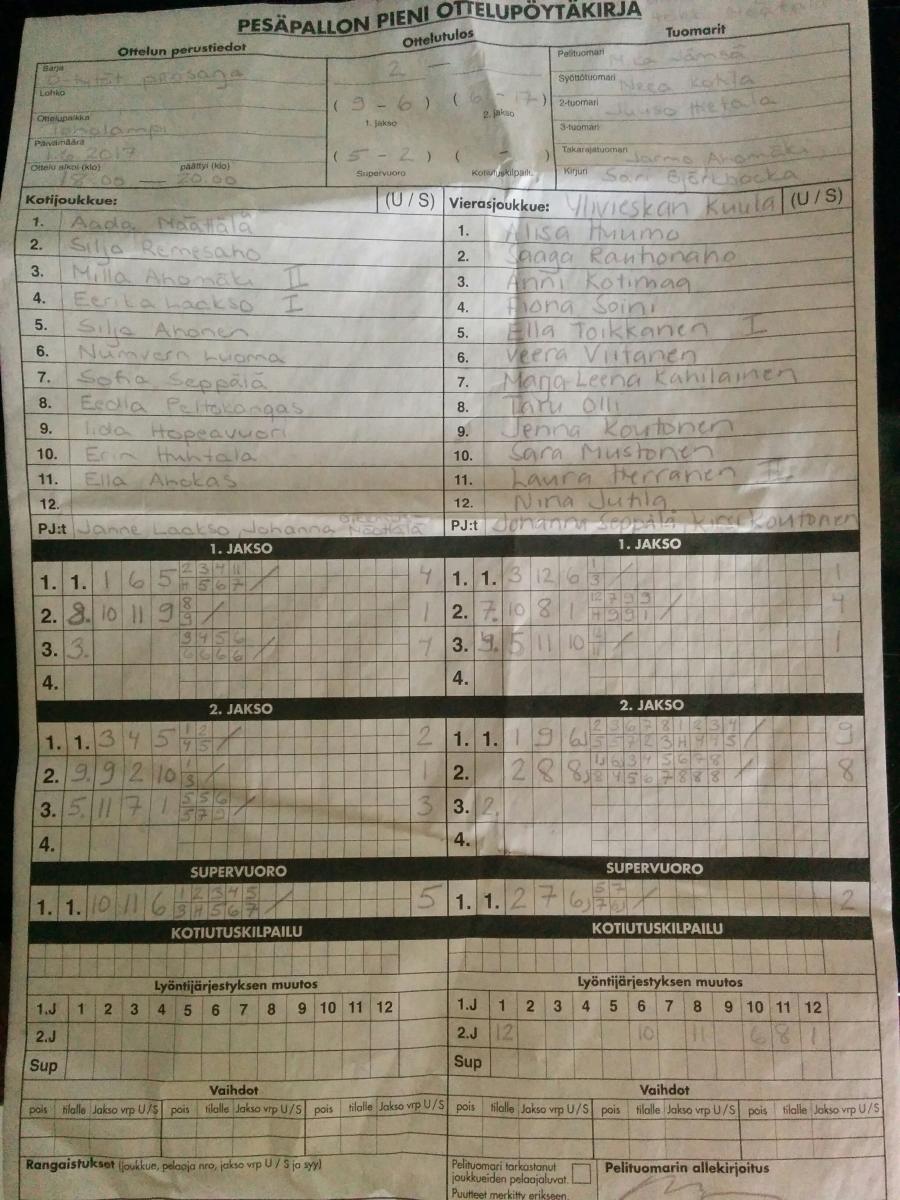 PESÄPALLON PIENI OTTELUPÖYTÄKIRJA
Ottelun perustiedot
Ottelutulos
Tuomarit
Sarja
Lohko
Ottelupaikka
Päivämäärä
2017
Ottelu alkoi (klo) päättyi (klo)
18.00 — 20.00
2 — 1
( 9 - 6 ) ( 6 - 17 )
1. jakso 2. jakso
( 5 - 2 ) ( - )
Supervuoro Kotiutuskilpailu
Pelituomari
Syöttötuomari
2-tuomari Juuso Hietala
3-tuomari
Takarajatuomari Jarmo Ahomäki
Kirjuri Sari Björkbacka
Kotijoukkue: (U / S)
1. Aada Määttälä
2. Silja Remesaho
3. Milla Ahomäki II
4. Eerika Laakso I
5. Silja Ahonen
6. Luoma
7. Sofia Seppälä
8. Eedla Peltokangas
9. Iida Hopeavuori
10. Erin Huhtala
11. Ella Ahokas
12.
PJ:t Janne Laakso, Johanna Määttälä
Vierasjoukkue: Ylivieskan Kuula (U / S)
1. Alisa Huumo
2. Saaga Rauhonaho
3. Anni Kotimaa
4. Fiona Soini
5. Ella Toikkanen I
6. Veera Viitanen
7. Marja-Leena Kahilainen
8. Taru Olli
9. Jenna Koutonen
10. Sara Mustonen
11. Laura Herranen II
12. Nina Jutila
PJ:t Johanna Seppälä, Kirsi Koutonen
1. JAKSO
1. 1. 1 6 5 2 3 4 11 / 4
4 5 6 7
2. 8. 10 11 9 8 / 1
9
3. 3. 3 4 5 6 / 4
6 6 6 6
4.
1. JAKSO
1. 1. 3 12 6 1 / 1
3
2. 7. 10 8 1 12 7 9 9 / 4
4 9 9 1
3. 9. 5 11 10 / 1
4.
2. JAKSO
1. 1. 3 4 5 1 2 / 2
4 5
2. 9. 9 2 10 1 / 1
3
3. 5. 11 7 1 5 5 6 / 3
5 7 9
4.
2. JAKSO
1. 1. 1 9 6 2 3 6 7 8 1 2 3 4 / 9
5 5 7 2 3 4 4 4 5
2. 2 8 8 6 3 4 5 6 7 8 / 8
8 4 5 6 7 8 8 8
3. 2.
4.
SUPERVUORO
1. 1. 10 11 6 1 2 3 4 5 / 5
3 4 5 6 7
SUPERVUORO
1. 1. 2 7 6 5 7 / 2
7 6
KOTIUTUSKILPAILU
KOTIUTUSKILPAILU
Lyöntijärjestyksen muutos
1.J 1 2 3 4 5 6 7 8 9 10 11 12
2.J
Sup
Lyöntijärjestyksen muutos
1.J 1 2 3 4 5 6 7 8 9 10 11 12
2.J 12 10 11 6 8 1
Sup
Vaihdot
pois tilalle Jakso vrp U / S pois tilalle Jakso vrp U / S pois tilalle Jakso vrp U / S
Vaihdot
pois tilalle Jakso vrp U / S pois tilalle Jakso vrp U / S pois tilalle Jakso vrp U / S
Rangaistukset (joukkue, pelaaja nro, jakso vrp U / S ja syy)
Pelituomari tarkastanut
joukkueiden pelaajaluvat.
Puutteet merkitty erikseen.
Pelituomarin allekirjoitus